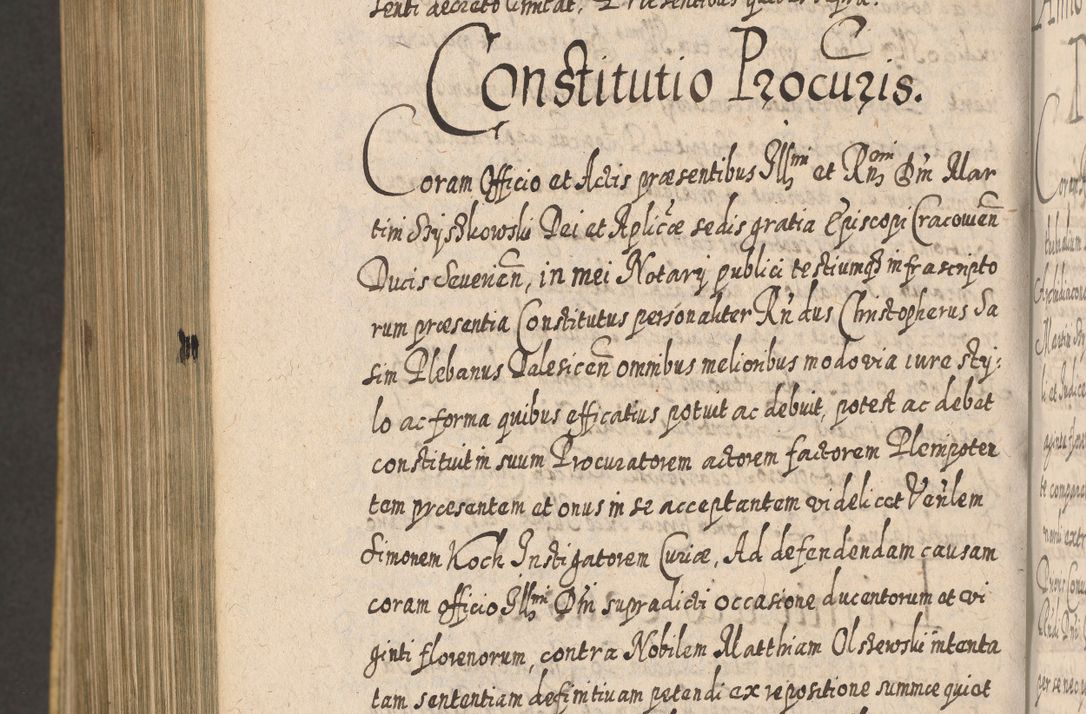 senti decreto
Constitutio Procuris.
Coram Officio et Actis præsentibus Illmi et Rnomi Dni Mar
tini Szyszkowski Dei et Aplicæ sedis gratia Episcopi Cracovien
Ducis Severien, in mei Notarij publici testiumq infrascripto
rum præsentia Constitutus personaliter Rndus Christopherus Sa
sim Plebanus Dalesicen omnibus melioribus modo via iure sty:
lo ac forma quibus efficatius potuit ac debuit, potest ac debet
constituit in suum Procuratorem actorem factorem Plenipoten
tem præsentem et onus in se acceptantem videlicet Venlem
Simonem Koch Instigatorem Curiæ, Ad defendendam causam
coram officio Illmi Dni supradicti occasione ducentorum et vi
ginti florenorum, contra Nobilem Matthiam Olszewski intenta
tam sententiam definitivam petendi ex repositione summæ quiet